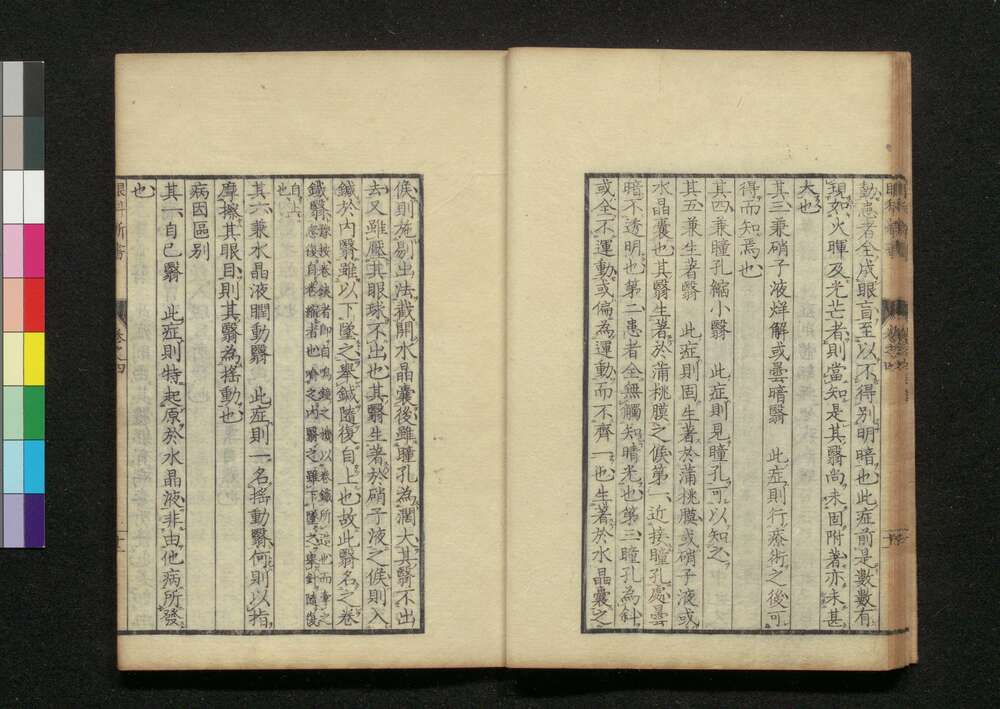 動患者全成眼盲至以不得別明暗也此症前是數數有
現如火暉及光芒者則當知是其翳尚未固附著亦未甚
大也
其三兼硝子液烊解或曇暗翳　此症則行療術之後可
得而知焉也
其四兼瞳孔縮小翳　此症則見瞳孔可以知之
其五兼生著翳　此症則固生著於蒲桃膜或硝子液或
水晶囊也其翳生著於蒲桃膜之候第一近接瞳孔處曇
暗不透明也第二患者全無觸知晴光也第三瞳孔為斜
或全不運動或偏為運動而不齊一也生著於水晶囊之
候則施剔出法截開水晶囊後雖瞳孔為濶大其翳不出
去又雖壓其眼球不出也其翳生著於硝子液之候則入
鍼於内翳雖以下墜之舉鍼隨復自上也故此翳名之卷
鐵翳
其六兼水晶液瞤動翳　此症則一名搖動翳何則以指
摩擦其眼目則其翳為搖動也
病因區别
其一自己翳　此症則特起原於水晶液非由他病所發
也
眼科新書
卷之四